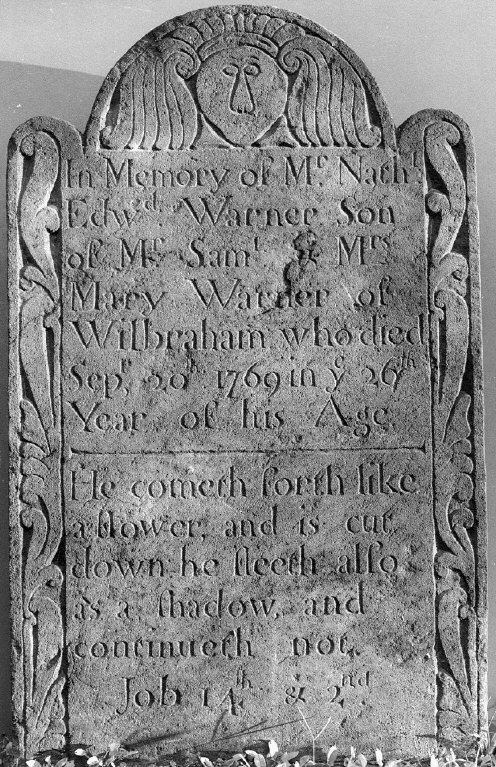 In Memory of Mr. Nathl.
Edwd. Warner Son
of Mr. Saml. & Mrs.
Mary Warner of
Wilbraham who died
Sept. 20th. 1769 in ye 26th
Year of his Age.
He cometh forth like
a flower, and is cut
down: he fleeth also
as a shadow, and
continueth not.
Job 14th & 2nd